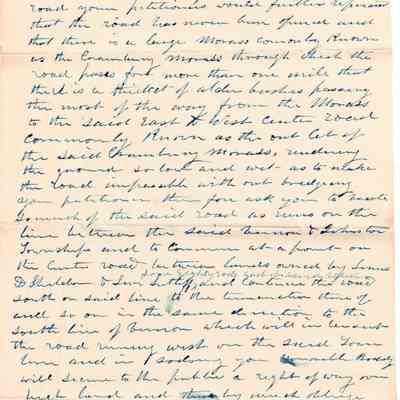 road your petitioners would further represent
that the road has never bin opened and
that there is a large Morass comonly Known
as the Cranbury Morass through which the
road pases for more than one mile that
there is a thicket of alder bushes passing
the most of the way from the Morass
to the said East & West Center road
Commonly Known as the out let of
the said Cranbury Morass, rendering
the ground so low and wet as to make
the road impassable with out bridging
your petitioners then fore ask you to
so much of the said road as runs on the
line between the said Benson & Johnston
Townships and to Comence at a point on
the Center road between lands owned by
D Sheldon & Levi and continue the road
south on said line to the termination there of
and so on in the same direction to the
south line of Benson which will in
the road runing west on the said Town
line and in so doing you Honorable Body
will secure to the public a right of way over
high land and there by much oblige